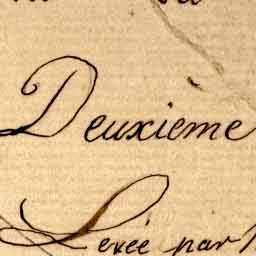 Deuxième
Levée par